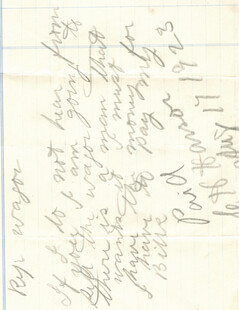 wagon
If I do not hear from
you I am going to
sell the wagon
there is a man that
wants it I must
have the money for
I have to pay my
Bills
Paid
17
1923